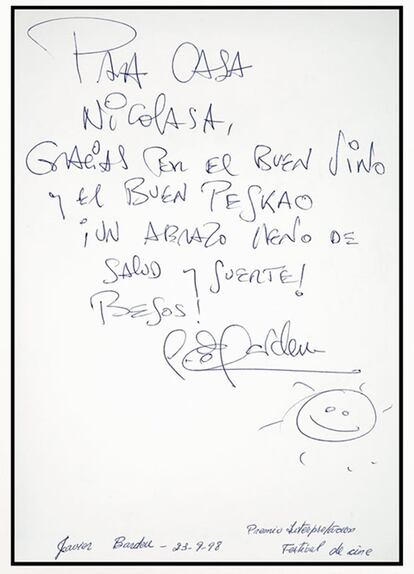 PARA CASA
NICOLASA,
GRACIAS POR EL BUEN VINO
y EL BUEN PESKAO
¡UN ABRAZO LLENO DE
SALUD y SUERTE!
BESOS!
Bardem
Javier Bardem - 23-9-98
Premio Interpretacion
Festival de cine